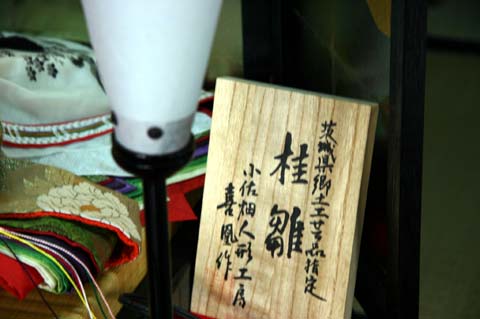 茨城県郷土工芸品指定
桂雛
小佐畑人形工房
喜凰作